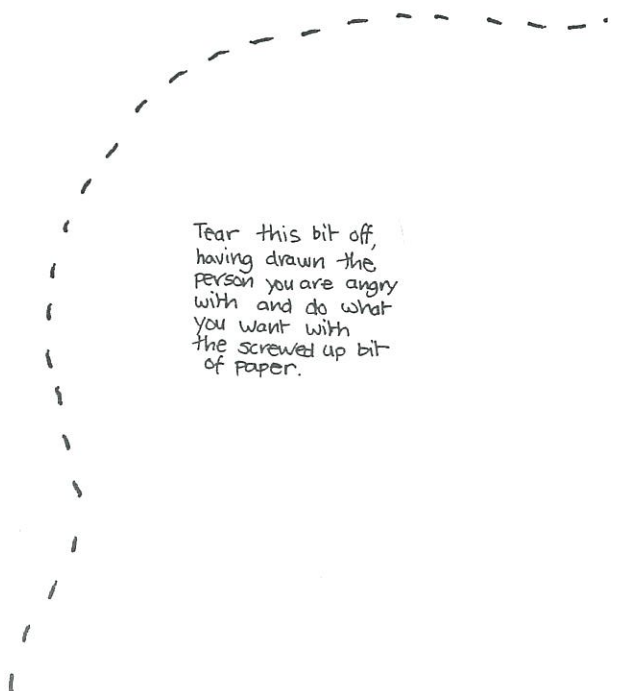 Tear this bit off,
having drawn the
person you are angry
with and do what
you want with
the screwed up bit
of paper.